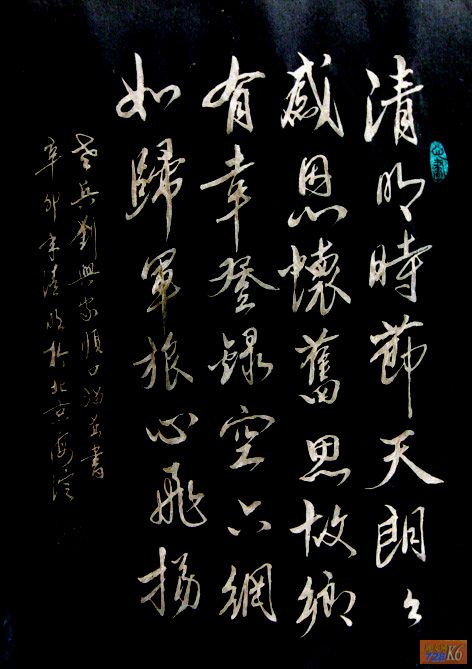 清明時節天朗朗
感恩懷舊思故鄉
有幸登錄空六網
如歸軍旅心飛揚
老兵劉興家順口謅並書
辛卯年清明於北京海淀
K6